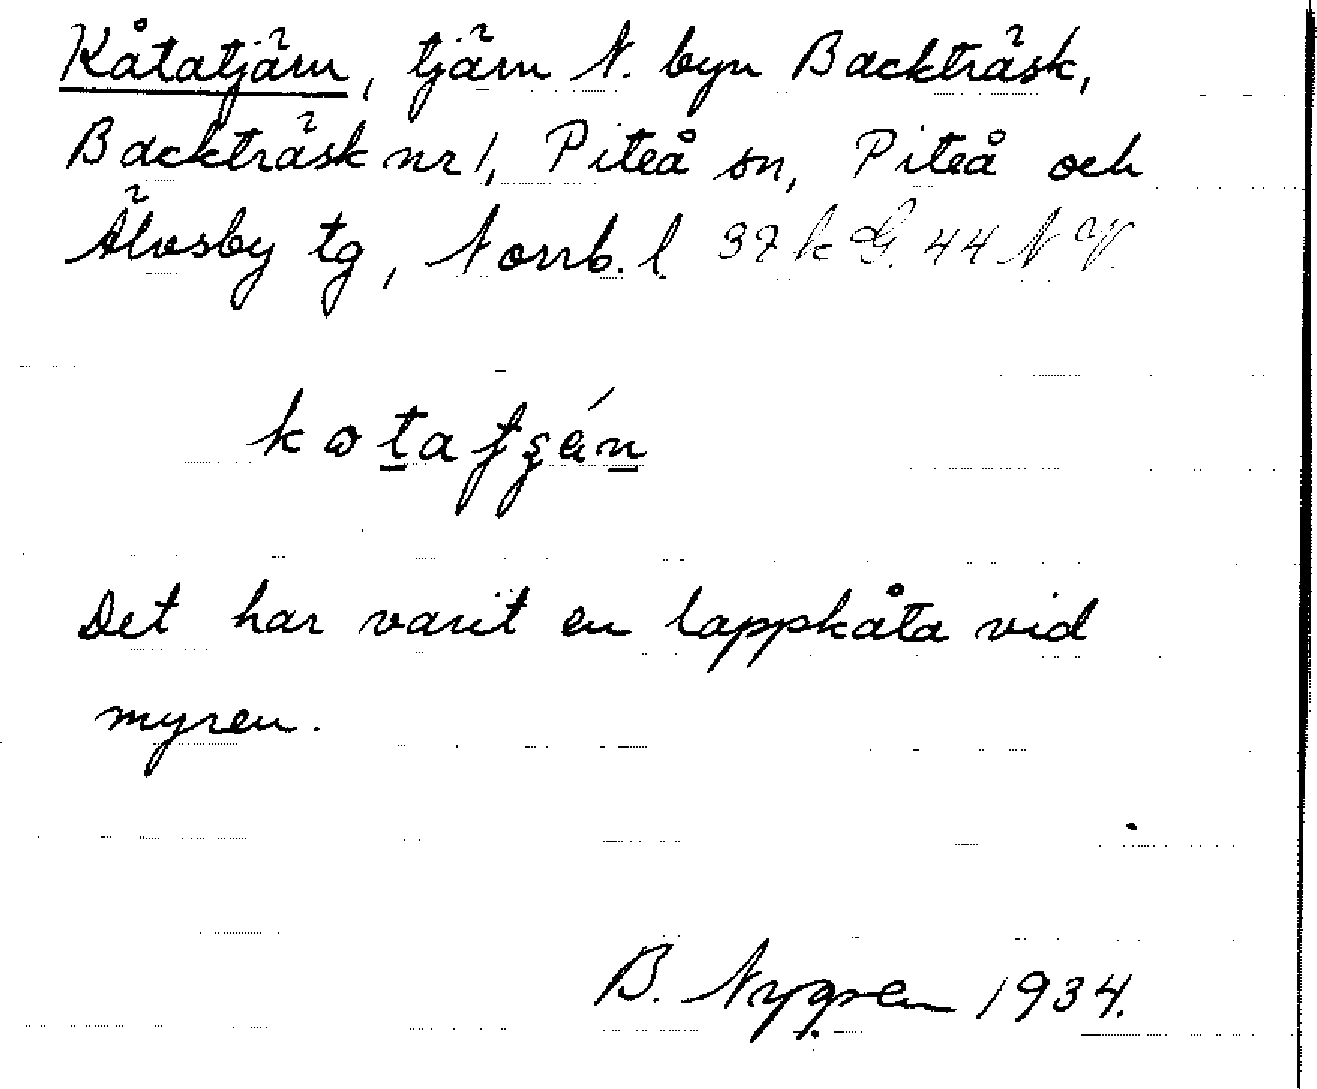 Kåtatjärn, tjärn N. byn Backträsk,
Backträsk nr 1, Piteå sn, Piteå och
Älvsby tg, Norrb. l. 37 k G. 44 N V.
Det har varit en lappkåta vid
myren.
B. Nygren 1934.